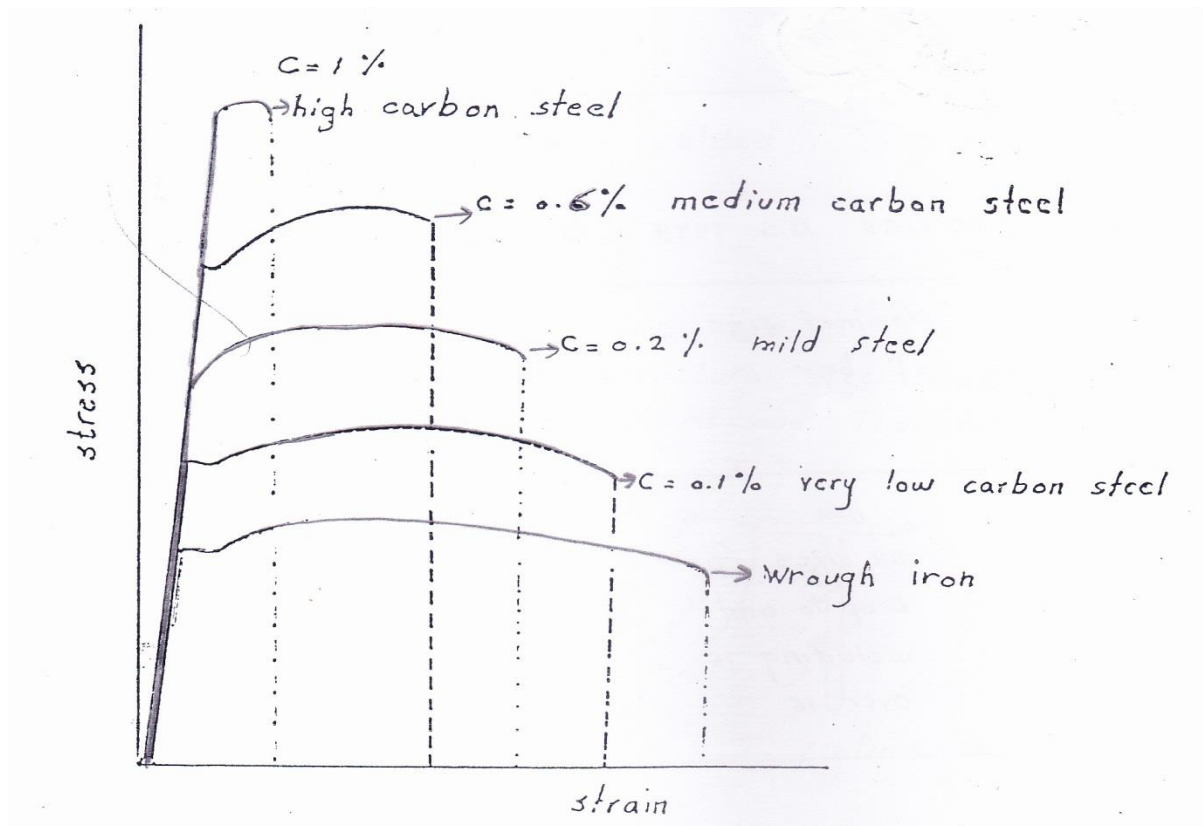 C = 1 %
high carbon steel
C = 0.6% medium carbon steel
C = 0.2 % mild steel
stress
C = 0.1% very low carbon steel
wrough iron
strain